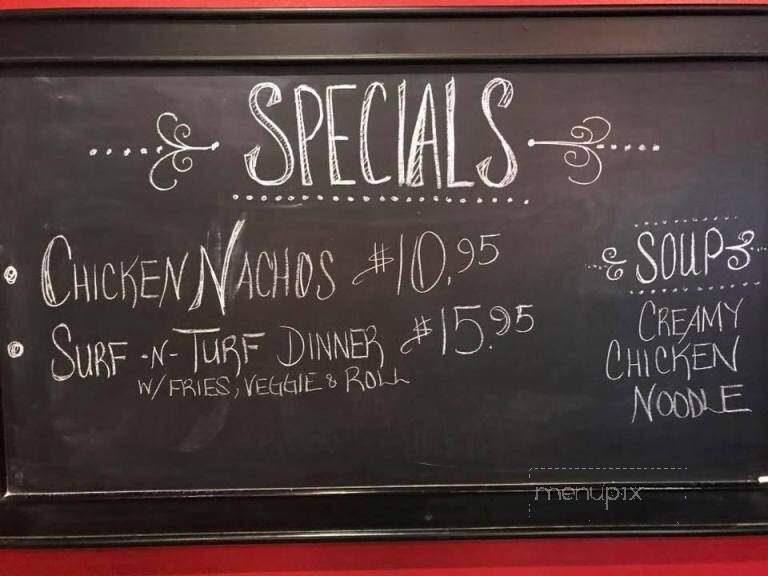 SPECIALS
CHICKEN NACHOS $10.95
SURF -N- TURF DINNER $15.95
W/ FRIES, VEGGIE & ROLL
SOUP
CREAMY
CHICKEN
NOODLE
menupix